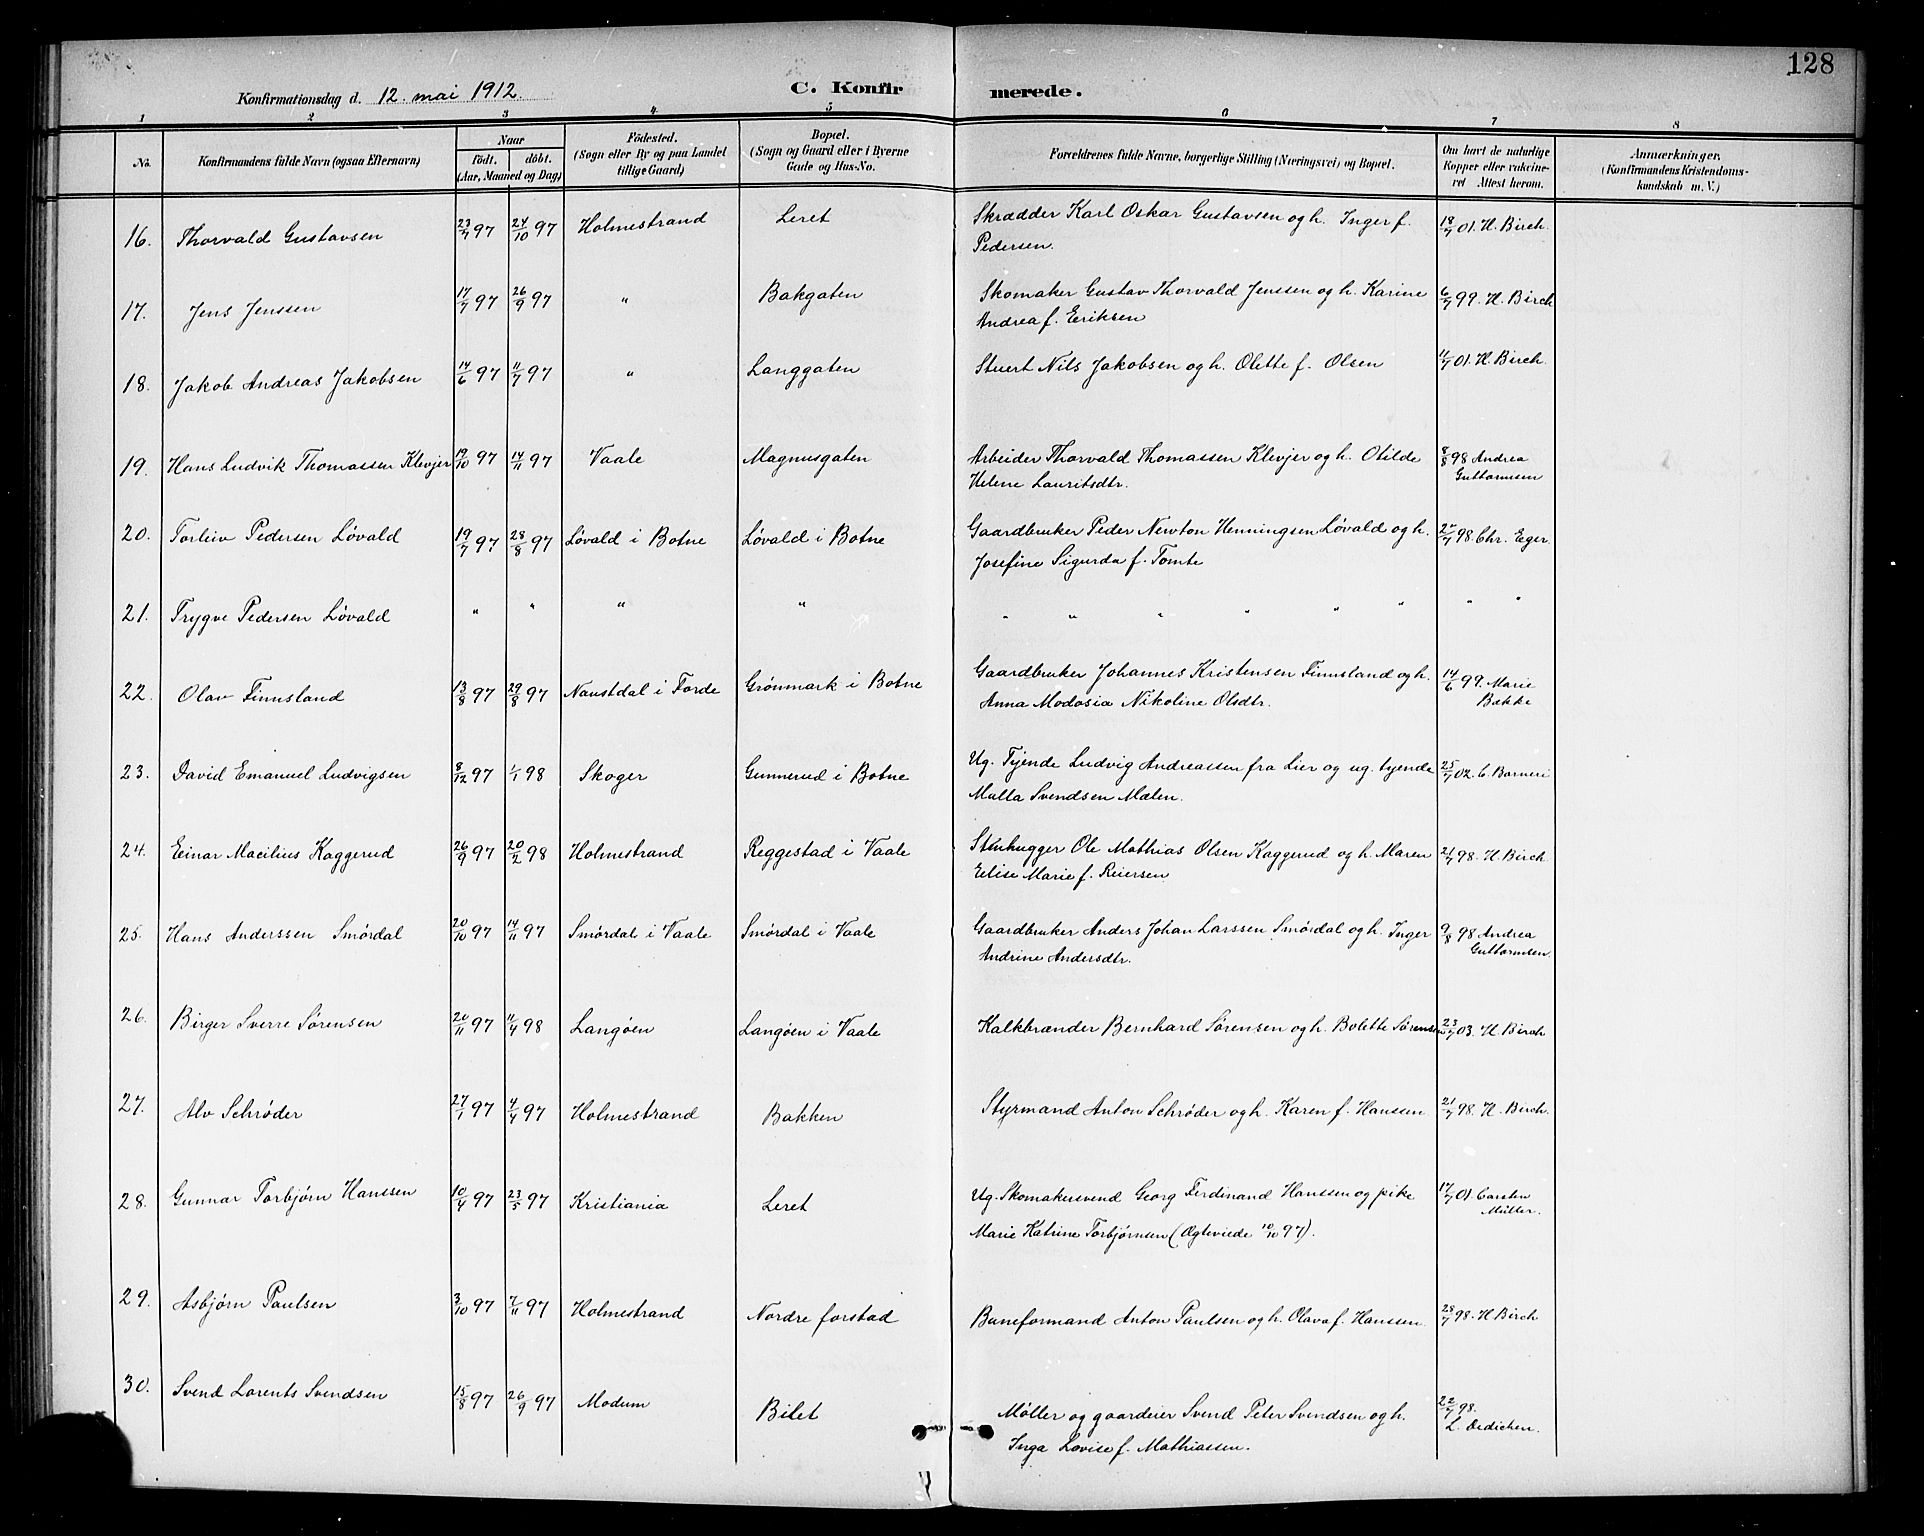 128
Konfirmationsdag d. 12. mai 1912.
C. Konfirmerede.
1 2 3 4 5 6 7 8
No.
Konfirmandens fulde Navn (ogsaa Efternavn)
Naar
födt. döbt.
(Aar, Maaned og Dag)
Födested.
(Sogn eller By og paa Landet
tillige Gaard)
Bopæl.
(Sogn og Gaard eller i Byerne
Gade og Hus-No.
Forældrenes fulde Navne, borgerlige Stilling (Næringsvei) og Bopæl.
Om havt de naturlige
Kopper eller vakcine-
ret Attest herom.
Anmærkninger.
(Konfirmandens Kristendoms-
kundskab m. V.)
16. Thorvald Gustavsen 23/7 97 24/10 97 Holmestrand Leret Skrædder Karl Oskar Gustavsen og h. Inger f. 18/7 01. H. Birch.
Pedersen.
17. Jens Jenssen 17/7 97 26/9 97 " Bakgaten Skomaker Gustav Thorvald Jenssen og h. Karine 6/7 99. H. Birch
Andrea f. Eeriksen
18. Jakob Andreas Jakobsen 14/6 97 11/7 97 " Langgaten Stuert Nils Jakobsen og h. Olette f. Olsen 11/7 01. H. Birch.
19. Hans Ludvik Thomassen Klevjer 19/10 97 14/11 97 Vaale Magnusgaten Arbeider Thorvald Thomassen Klevjer og h. Otilde 8/8 98 Andrea
Helene Lauritsdtr. Guttormsen
20. Torleiv Pedersen Løvald 19/7 97 28/8 97 Løvald i Botne Løvald i Botne Gaardbruker Peder Newton Henningsen Løvald og h. 98. Chr. Eger.
Josefine Sigurda f. Tomte
21. Trygve Pedersen Løvald " " " " " " " " " " " "
22. Olav Finnsland 13/8 97 29/8 97 Naustdal i Førde Grönmark i Botne Gaardbruker Johannes Kristensen Finnsland og h. 14/6 99. Marie
Anna Modosia Nikoline Olsdtr. Bakke
23. David Emanuel Ludvigsen 8/12 97 1/1 98 Skoger Gunnerud i Botne Ug. Tjende Ludvig Andreassen fra Lier og ug. tjende 25/7 02. C. Barneri
Mulla Svendsen Mælen.
24. Einar Macilius Kaggerud 26/9 97 20/2 98 Holmestrand Reggestad i Vaale Stenhugger Ole Mathias Olsen Kaggerud og h. Maren 21/7 98. H. Birch
Eelise Marie f. Reiersen
25. Hans Anderssen Smördal 20/10 97 14/11 97 Smördal i Vaale Smördal i Vaale Gaardbruker Anders Johan Larssen Smördal og h. Inger 9/8 98 Andrea
Andrine Andersdtr. Guttormsen.
26. Birger Sverre Sørensen 20/11 97 11/4 98 Langöen Langöen i Vaale Kalkbrænder Bernhard Sørensen og h. Bolette Sørensen 23/7 03. H. Birch
27. Alv Schrøder 27/1 97 4/4 97 Holmestrand Bakken Styrmand Anton Schrøder og h. Karen f. Hanssen 21/7 98. H. Birch.
28. Gunnar Torbjørn Hanssen 10/4 97 23/5 97 Kristiania Leret Ug. Skomakersvend Georg Ferdinand Hanssen og pike 17/7 01. Carsten
Marie Katrine Torbjørnsen (Ægteviede 10/10 97). Müller.
29. Asbjørn Paulsen 3/10 97 7/11 97 Holmestrand Nordre forstad Baneformand Anton Paulsen og h. Olava f. Hanssen. 28/7 98. H Birch
30. Svend Lorents Svendsen 15/8 97 26/9 97 Modum Bilet Møller og gaardeier Svend Peter Svendsen og h. 22/7 98.
Inga Lovise f. Mathiassen. L. Dedichen.